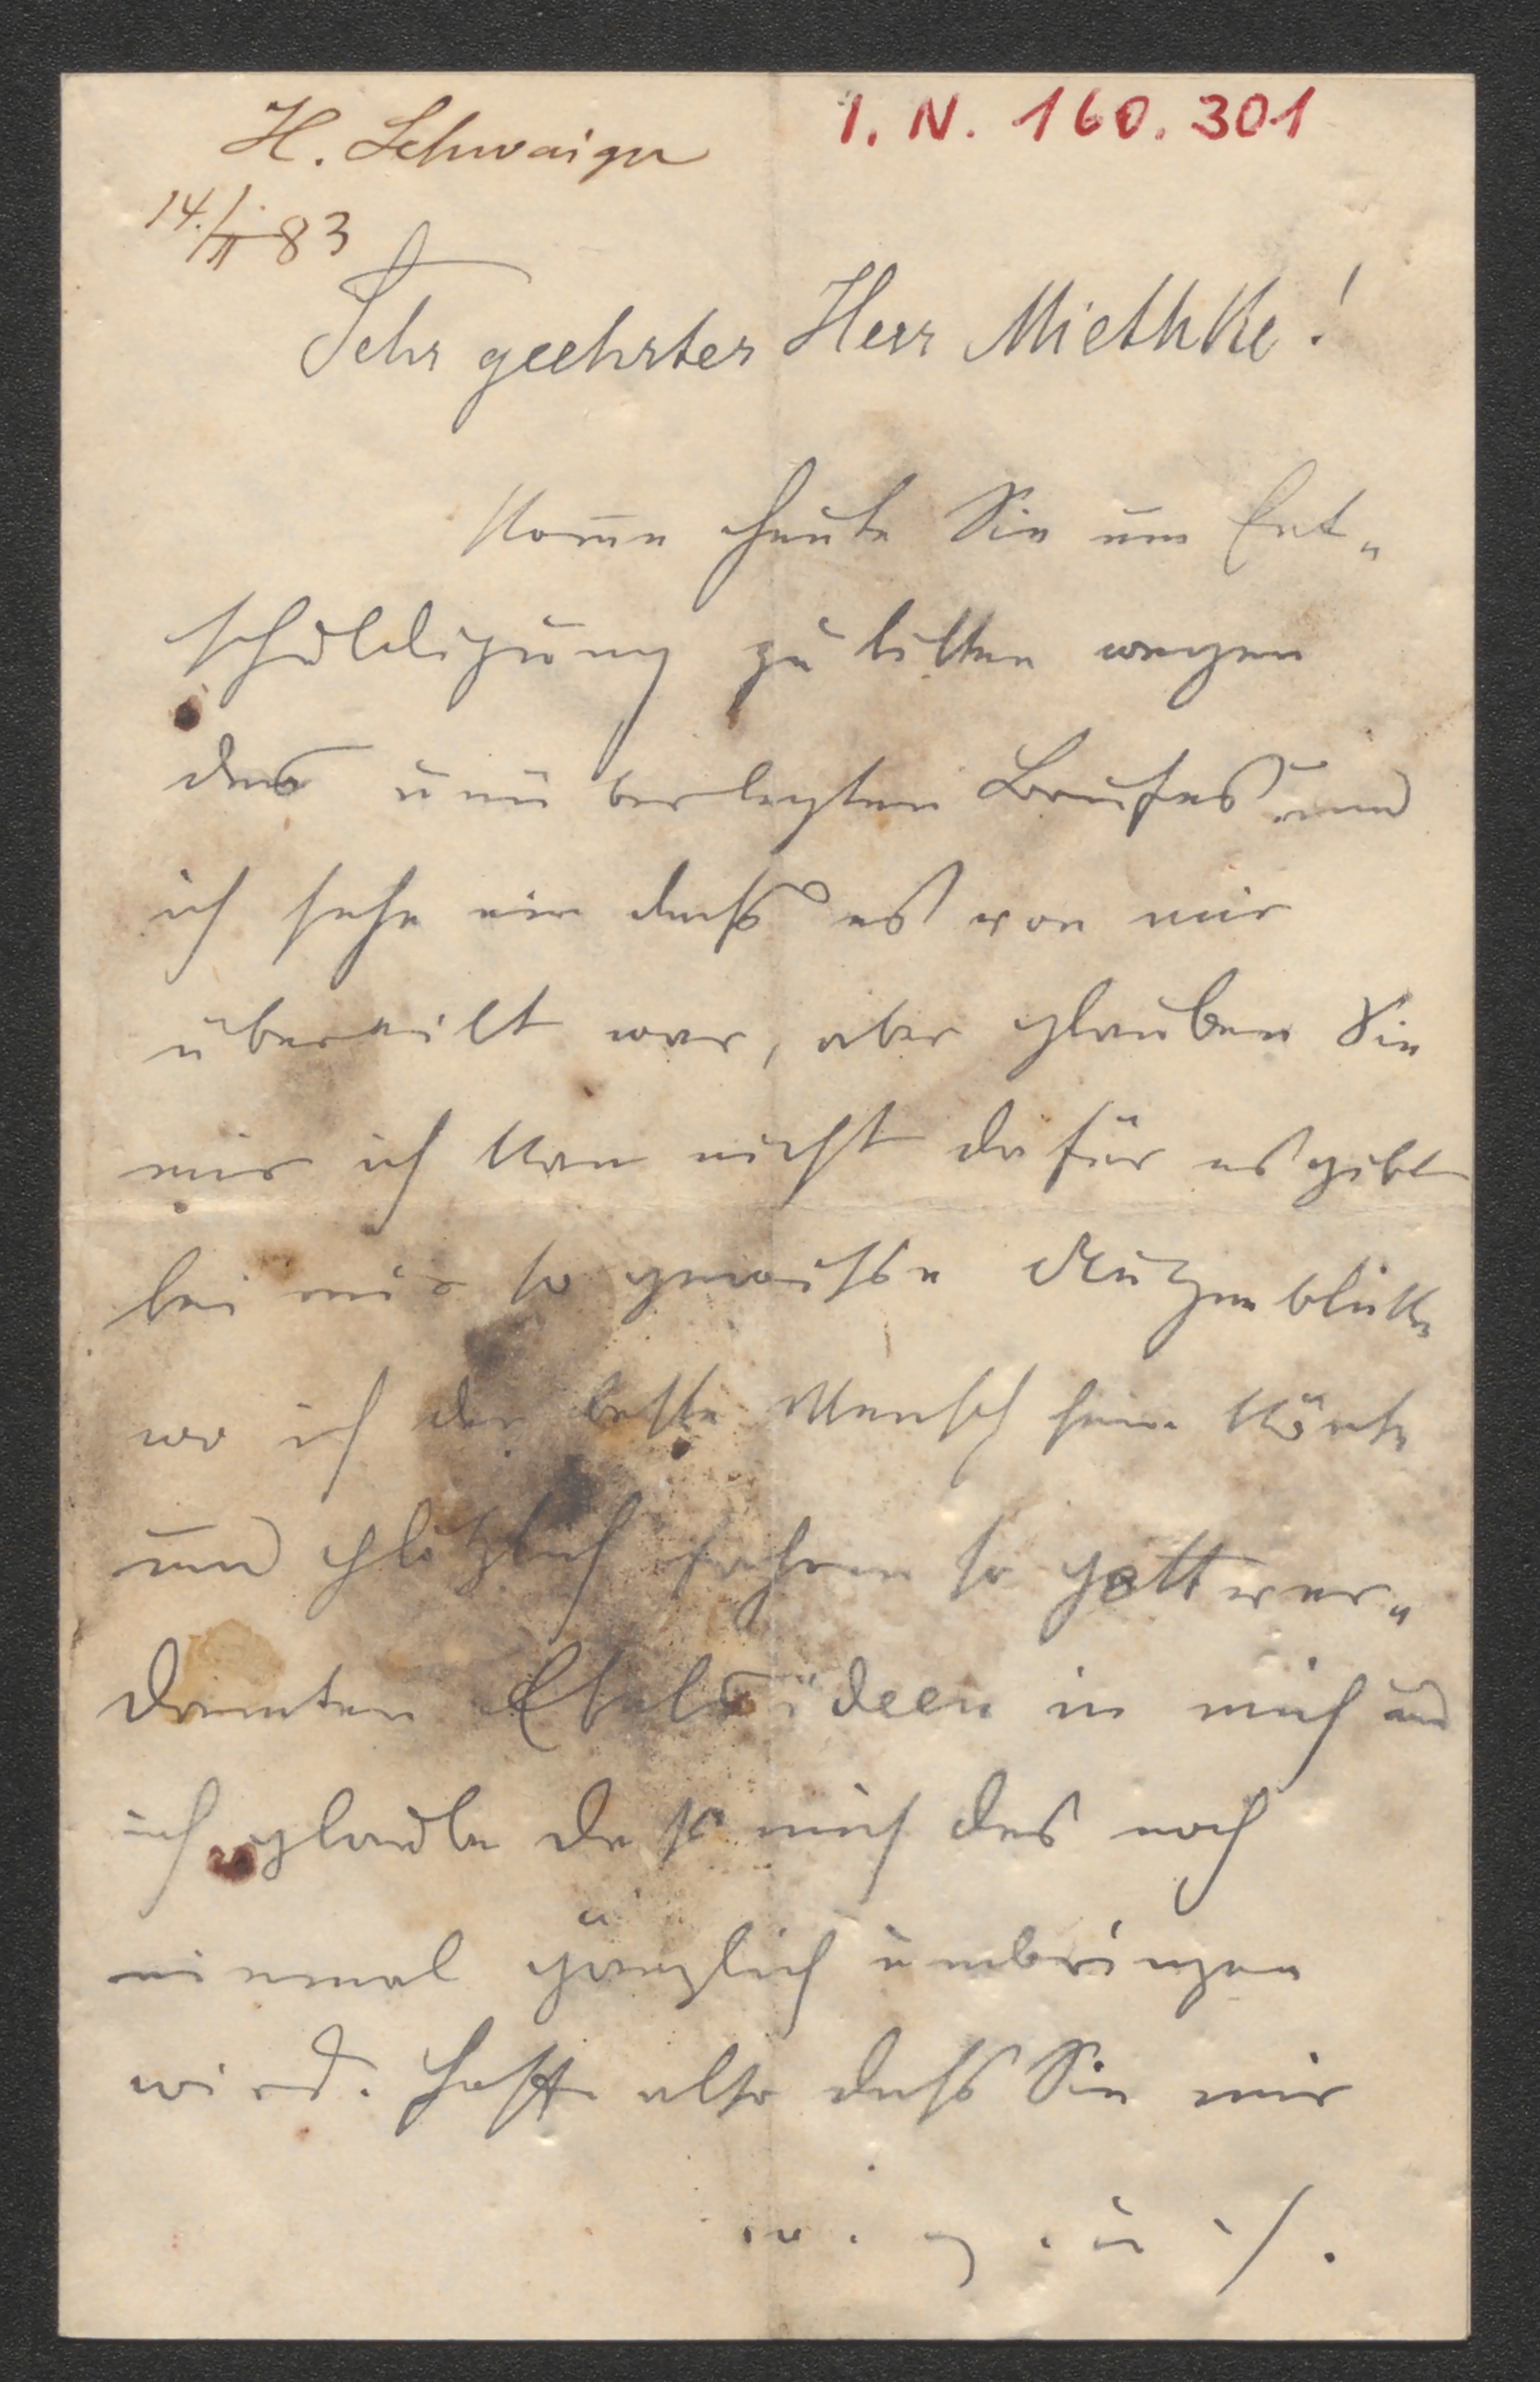 H. Schwaiger
I. N. 160.301
14./II 83
Sehr geehrter Herr Miethke!
Kom̄e heute Sie um Ent„
schuldigung zu bitten wegen
des unüberlegten Briefes und
ich sehe ein daß es von mir
übereilt war, aber glauben Sie
mir ich kan nicht dafür es gibt
bei mir so gewisse Augenblicke
wo ich der beste Mensch sein könte
und plötzlich fahren so gottver„
damten Eselsideen in mich und
ich glaube daß mich das noch
einmal gänzlich umbringen
wird. Hoffe also daß Sie mir